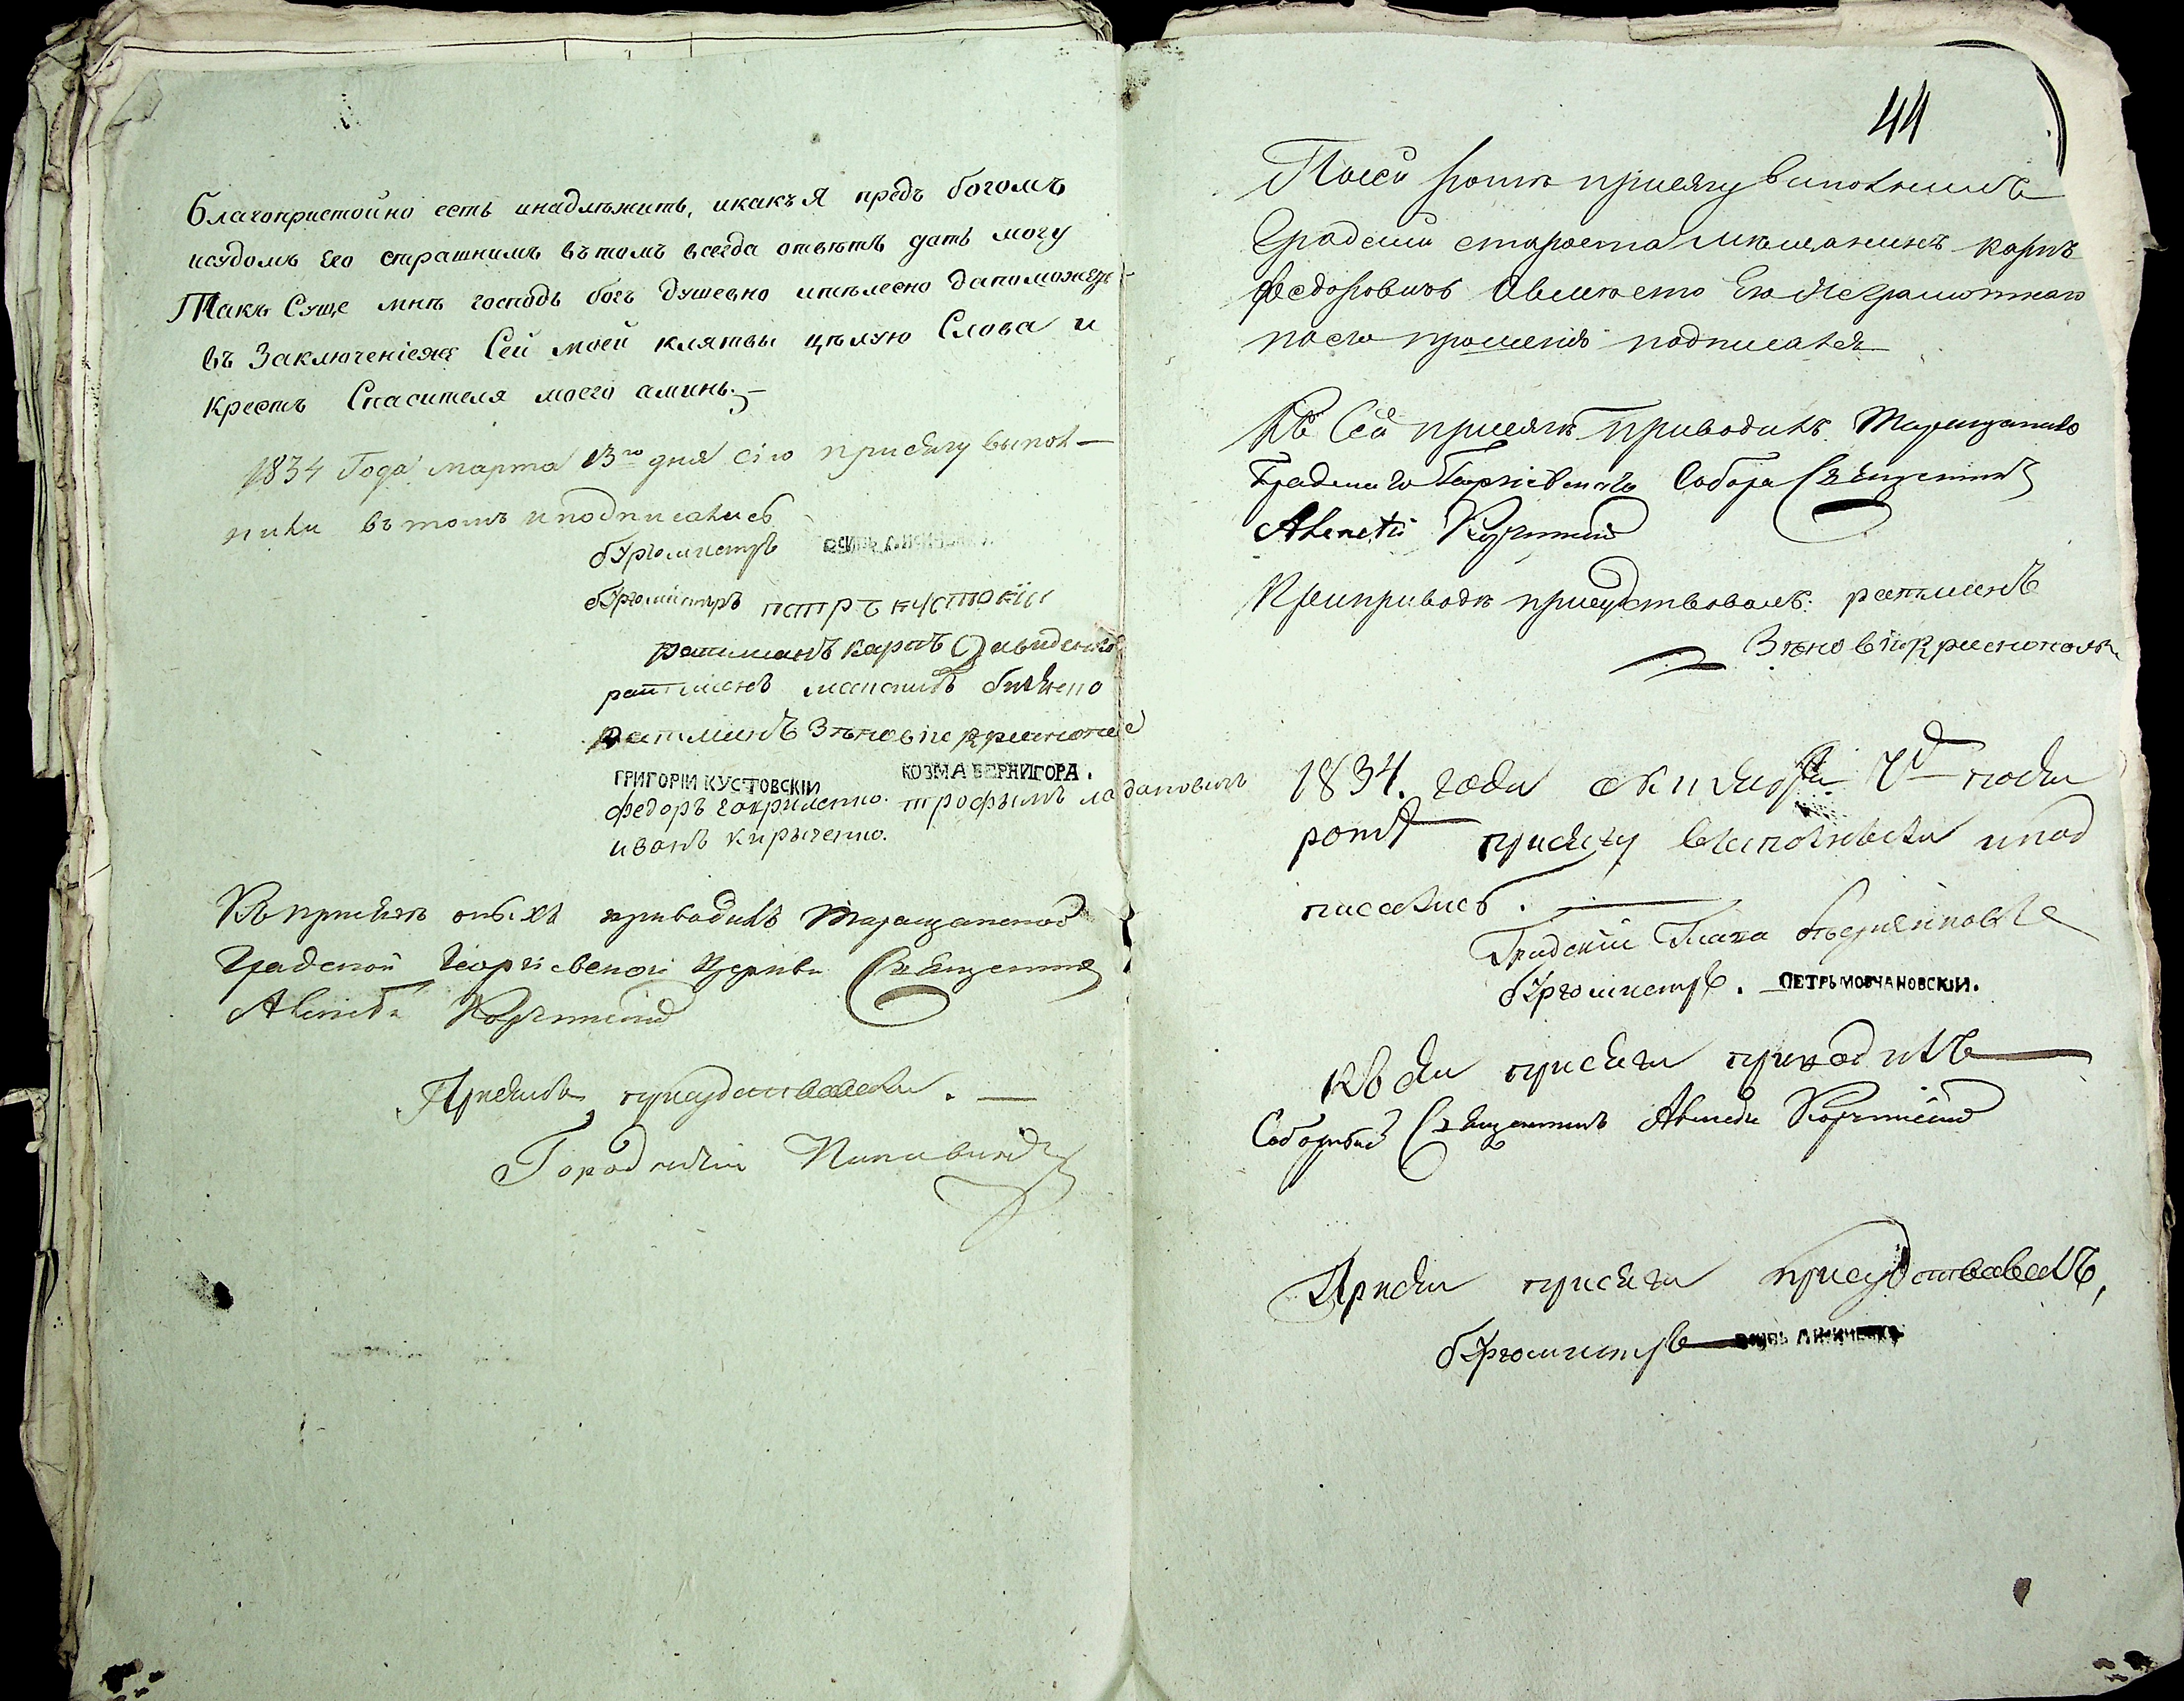 благопристойно есть инадлѣжитъ, икакъ я предъ богомъ
исудомъ Его страшнимъ вътомъ всегда отвѣтъ дать могу
Такъ Суще мнѣ господь богъ душевно ителесно дапоможетъ
въ Заключеніеже Сей моей клятвы цѣлую Слова и
Крестъ Спасителя моего аминь.
1834 Года марта 13го дня сію присягу выпол-
нили въ томъ иподписались
бургомистръ
бургомистръ петръ кустокій
ратманъ карпъ
ратманъ
ратманъ
ГРИГОРІЙ КУСТОВСКІЙ КОЗМА БЕРНИГОРА.
федоръ гавриленко. трофымъ ладановичъ
иванъ кирыченко.
Къ присягѣ оныхъ приводилъ Таращанской
Градской Георгіевской Церкви Священникъ
Алексѣй
Присемъ присудствовали.
Городничій
44
Посей формѣ присягу виполнилъ
Градскій староста мѣщанинъ карпъ
федоровичъ авместо Его Неграмотнаго
поего прошенію подписался
Къ Сей присягѣ приводилъ Таращанского
Градского Георгіевского Собора Священникъ
Алексѣй
Приприводѣ присудствовалъ: ратманъ
1834. года октября 7д посей
формѣ присягу выполнили ипод
писались.
Градскій Глава
бургомистръ. ПЕТРЪ МОВЧАНОВСКІЙ.
Къ сей присяги приводилъ
Соборный Священникъ Алексѣй
Присей присяги присудствовалъ,
бургомистръ